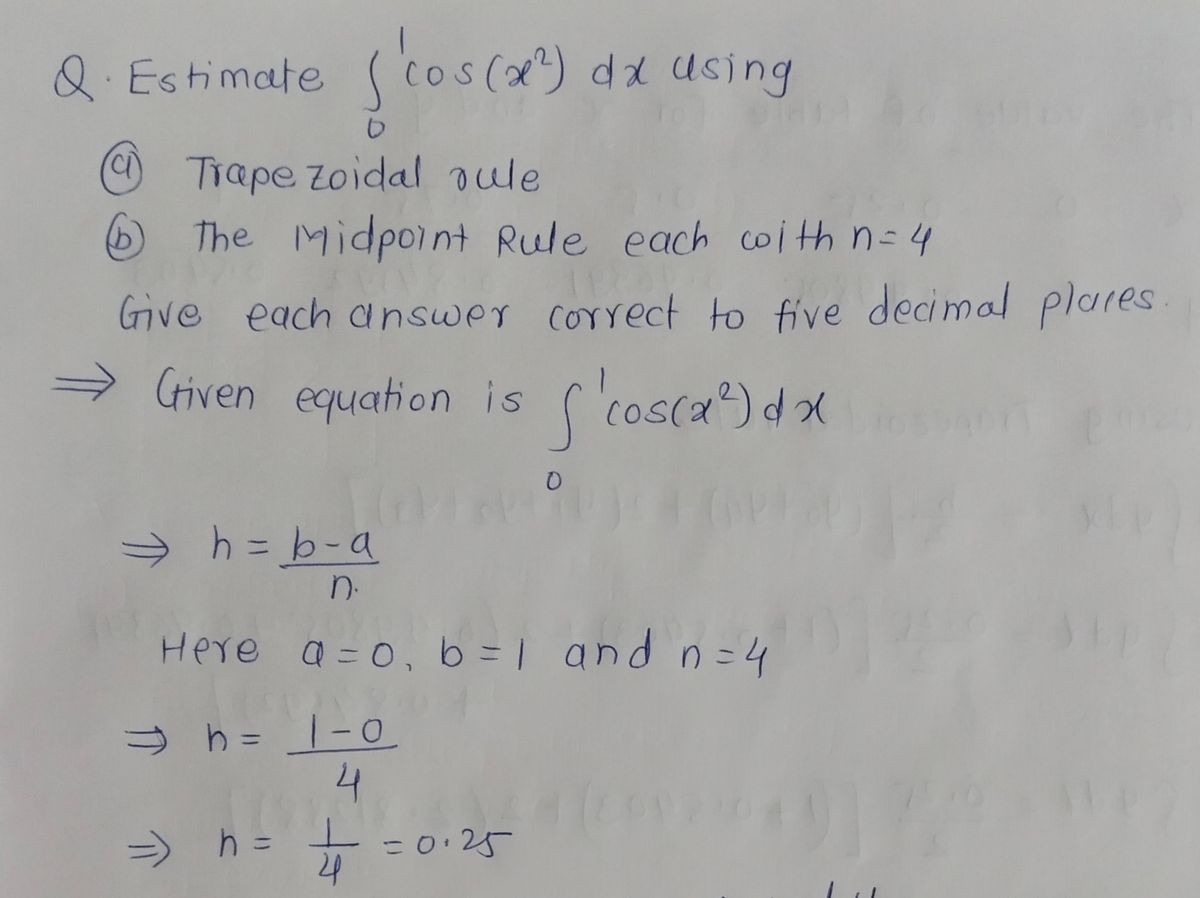 Q. Estimate ∫₀¹ cos(x²) dx using
(a) Trapezoidal rule
(b) The Midpoint Rule each with n=4
Give each answer correct to five decimal places.
⇒ Given equation is ∫₀¹ cos(x²) dx
⇒ h = b-a / n.
Here a=0, b=1 and n=4
⇒ h = 1-0 / 4
⇒ h = 1/4 = 0.25